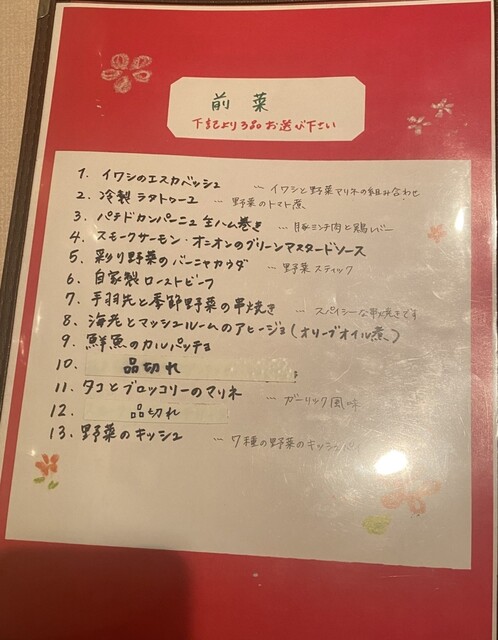 前菜
下記より3品お選び下さい
1. イワシのエスカベッシュ … イワシと野菜マリネの組み合わせ
2. 冷製ラタトゥーユ … 野菜のトマト煮
3. パテドカンパーニュ生ハム巻き … 豚ミンチ肉と鶏レバー
4. スモークサーモン・オニオンのグリーンマスタードソース
5. 彩り野菜のバーニャカウダ … 野菜スティック
6. 自家製ローストビーフ
7. 手羽先と季節野菜の串焼き … スパイシーな串焼きです
8. 海老とマッシュルームのアヒージョ(オリーブオイル煮)
9. 鮮魚のカルパッチョ
10. 品切れ
11. タコとブロッコリーのマリネ … ガーリック風味
12. 品切れ
13. 野菜のキッシュ … 7種の野菜のキッシュ